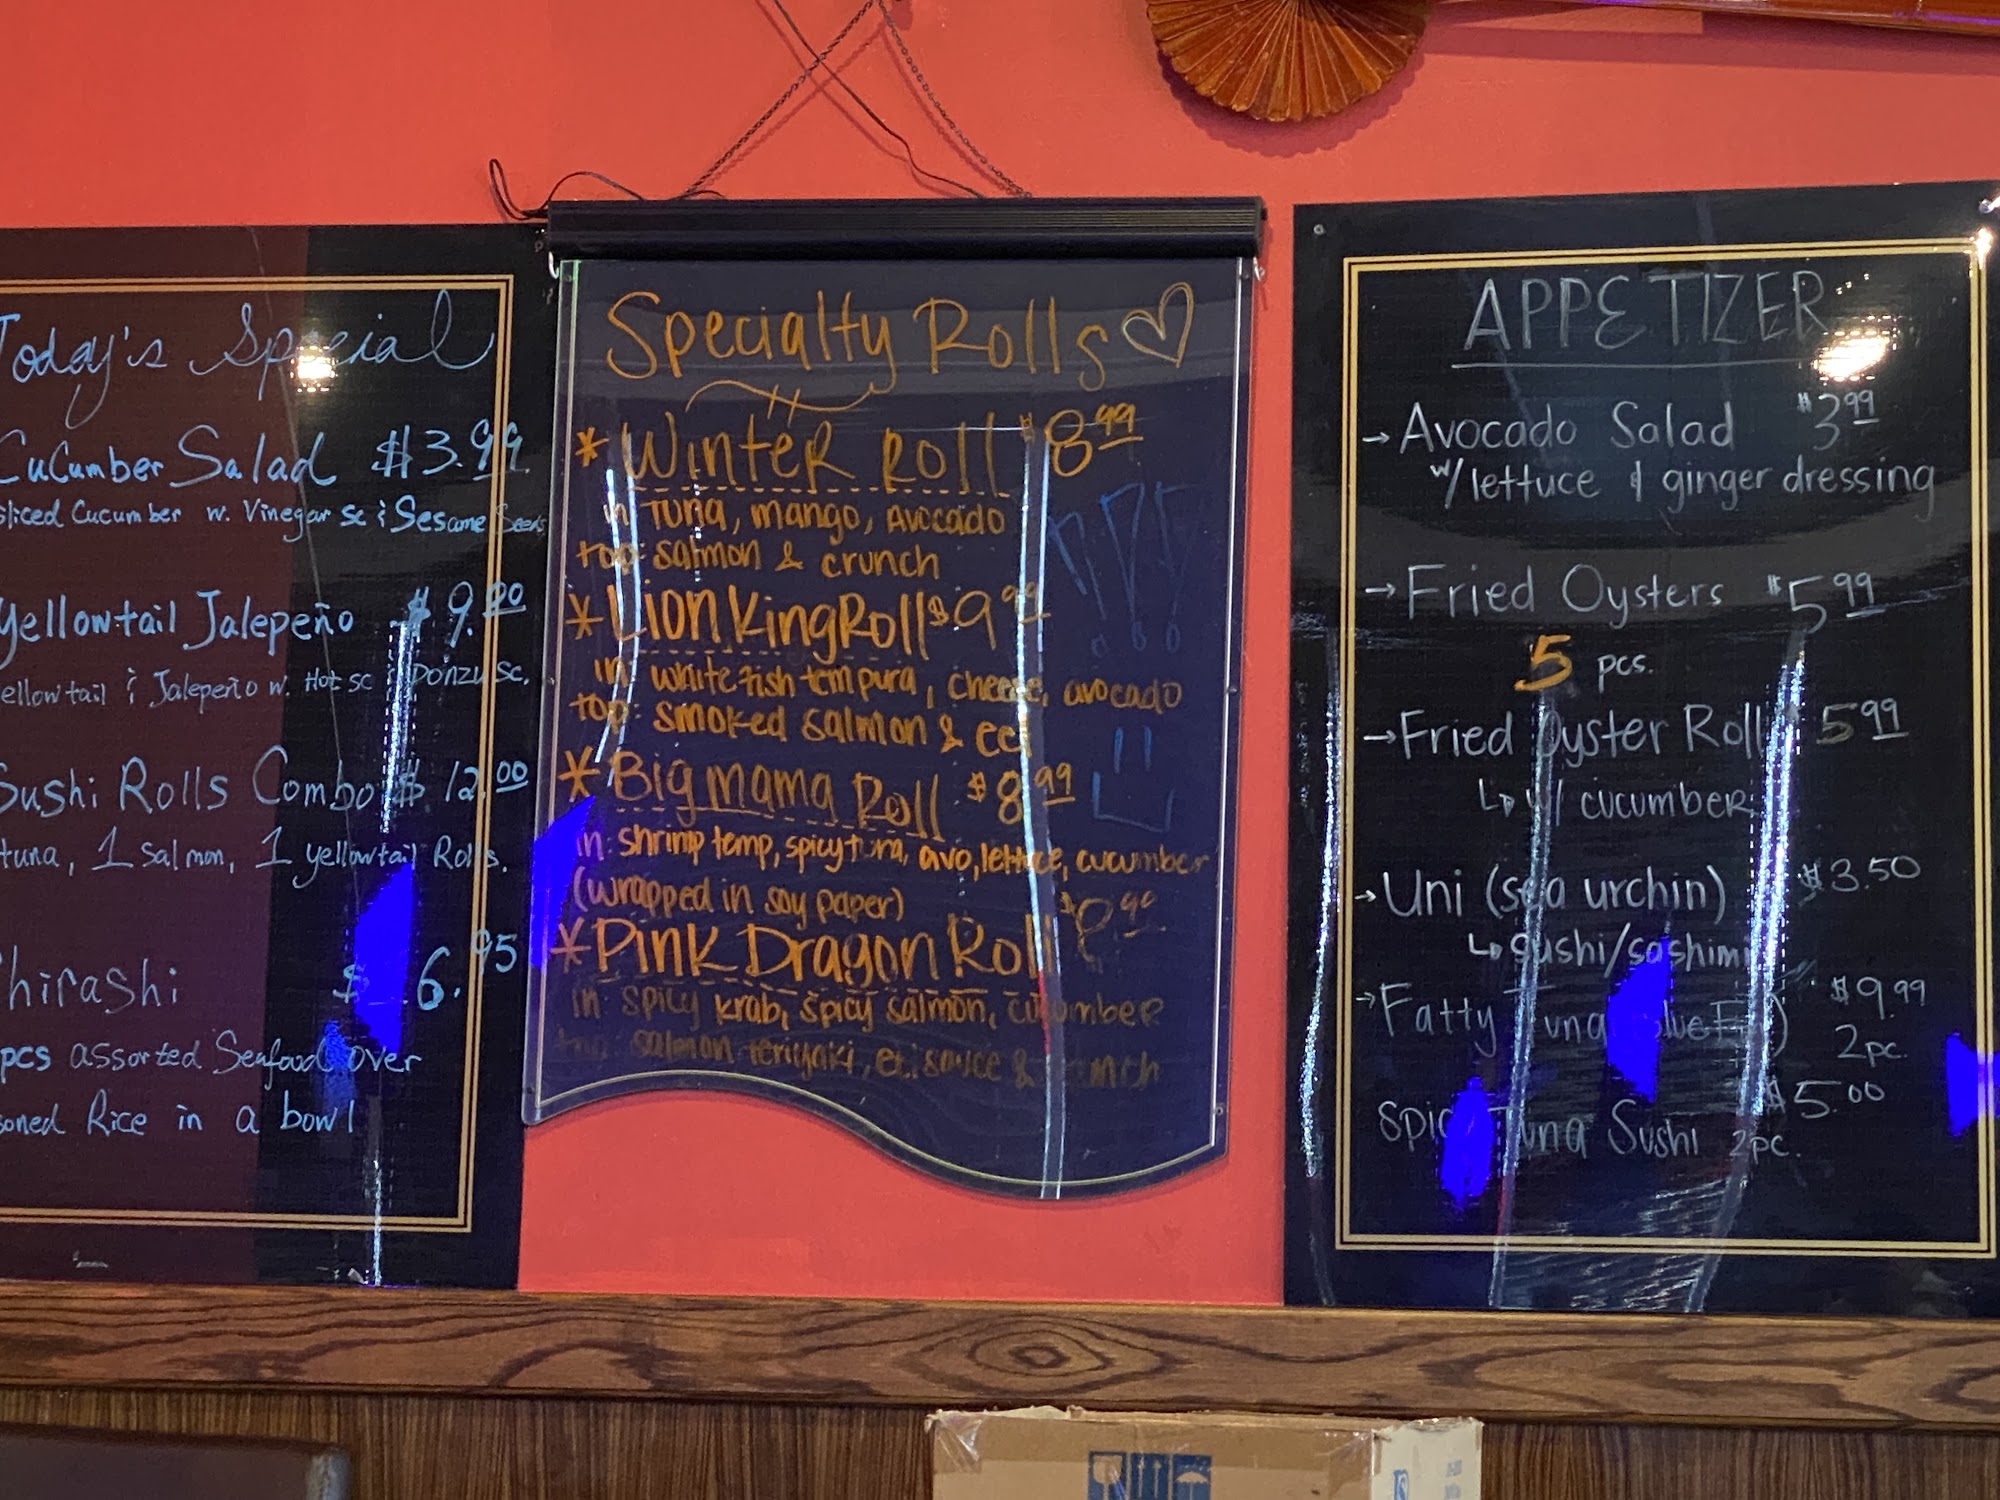 Today's Special
Cucumber Salad $3.99
sliced Cucumber w. Vinegar sc & Sesame Seeds
Yellowtail Jalepeño $9.00
ellowtail & Jalepeño w. Hot sc & Ponzu sc.
Sushi Rolls Combo $12.00
tuna, 1 salmon, 1 yellowtail Rolls.
hirashi 6.95
pcs assorted Seafood over
soned Rice in a bowl
Specialty Rolls
* Winter Roll $8.99
in: tuna, mango, avocado
top: salmon & crunch
* Lion King Roll $9.99
in: white fish tempura, cheese, avocado
top: smoked salmon & eel
* Big mama Roll $8.99
in: shrimp temp, spicy tuna, avo, lettuce, cucumber
(wrapped in soy paper)
* Pink Dragon Roll $8.99
in: spicy krab, spicy salmon, cucumber
top: salmon teriyaki, sauce & crunch
!!!
APPETIZER
→ Avocado Salad $3.99
w/ lettuce & ginger dressing
→ Fried Oysters $5.99
5 pcs.
→ Fried Oyster Roll 5.99
↳ w/ cucumber
→ Uni (sea urchin) $3.50
↳ sushi/sashimi
→ Fatty Tuna (Blue Fin) $9.99
2pc.
Spicy Tuna Sushi 2pc. $5.00